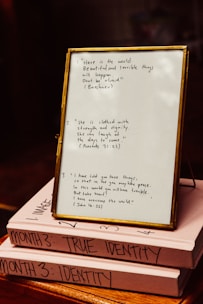 "Here is the world.
Beautiful and terrible things
will happen.
Don't be afraid."
(Buechner)
"She is clothed with
strength and dignity,
she can laugh at
the days to come."
(Proverbs 31:25)
"I have told you these things,
so that in me you may have peace.
In this world you will have trouble.
But take heart!
I have overcome the world"
(John 16:33)
I MAKE
MONTH 3: TRUE IDENTITY
MONTH 3: IDENTITY